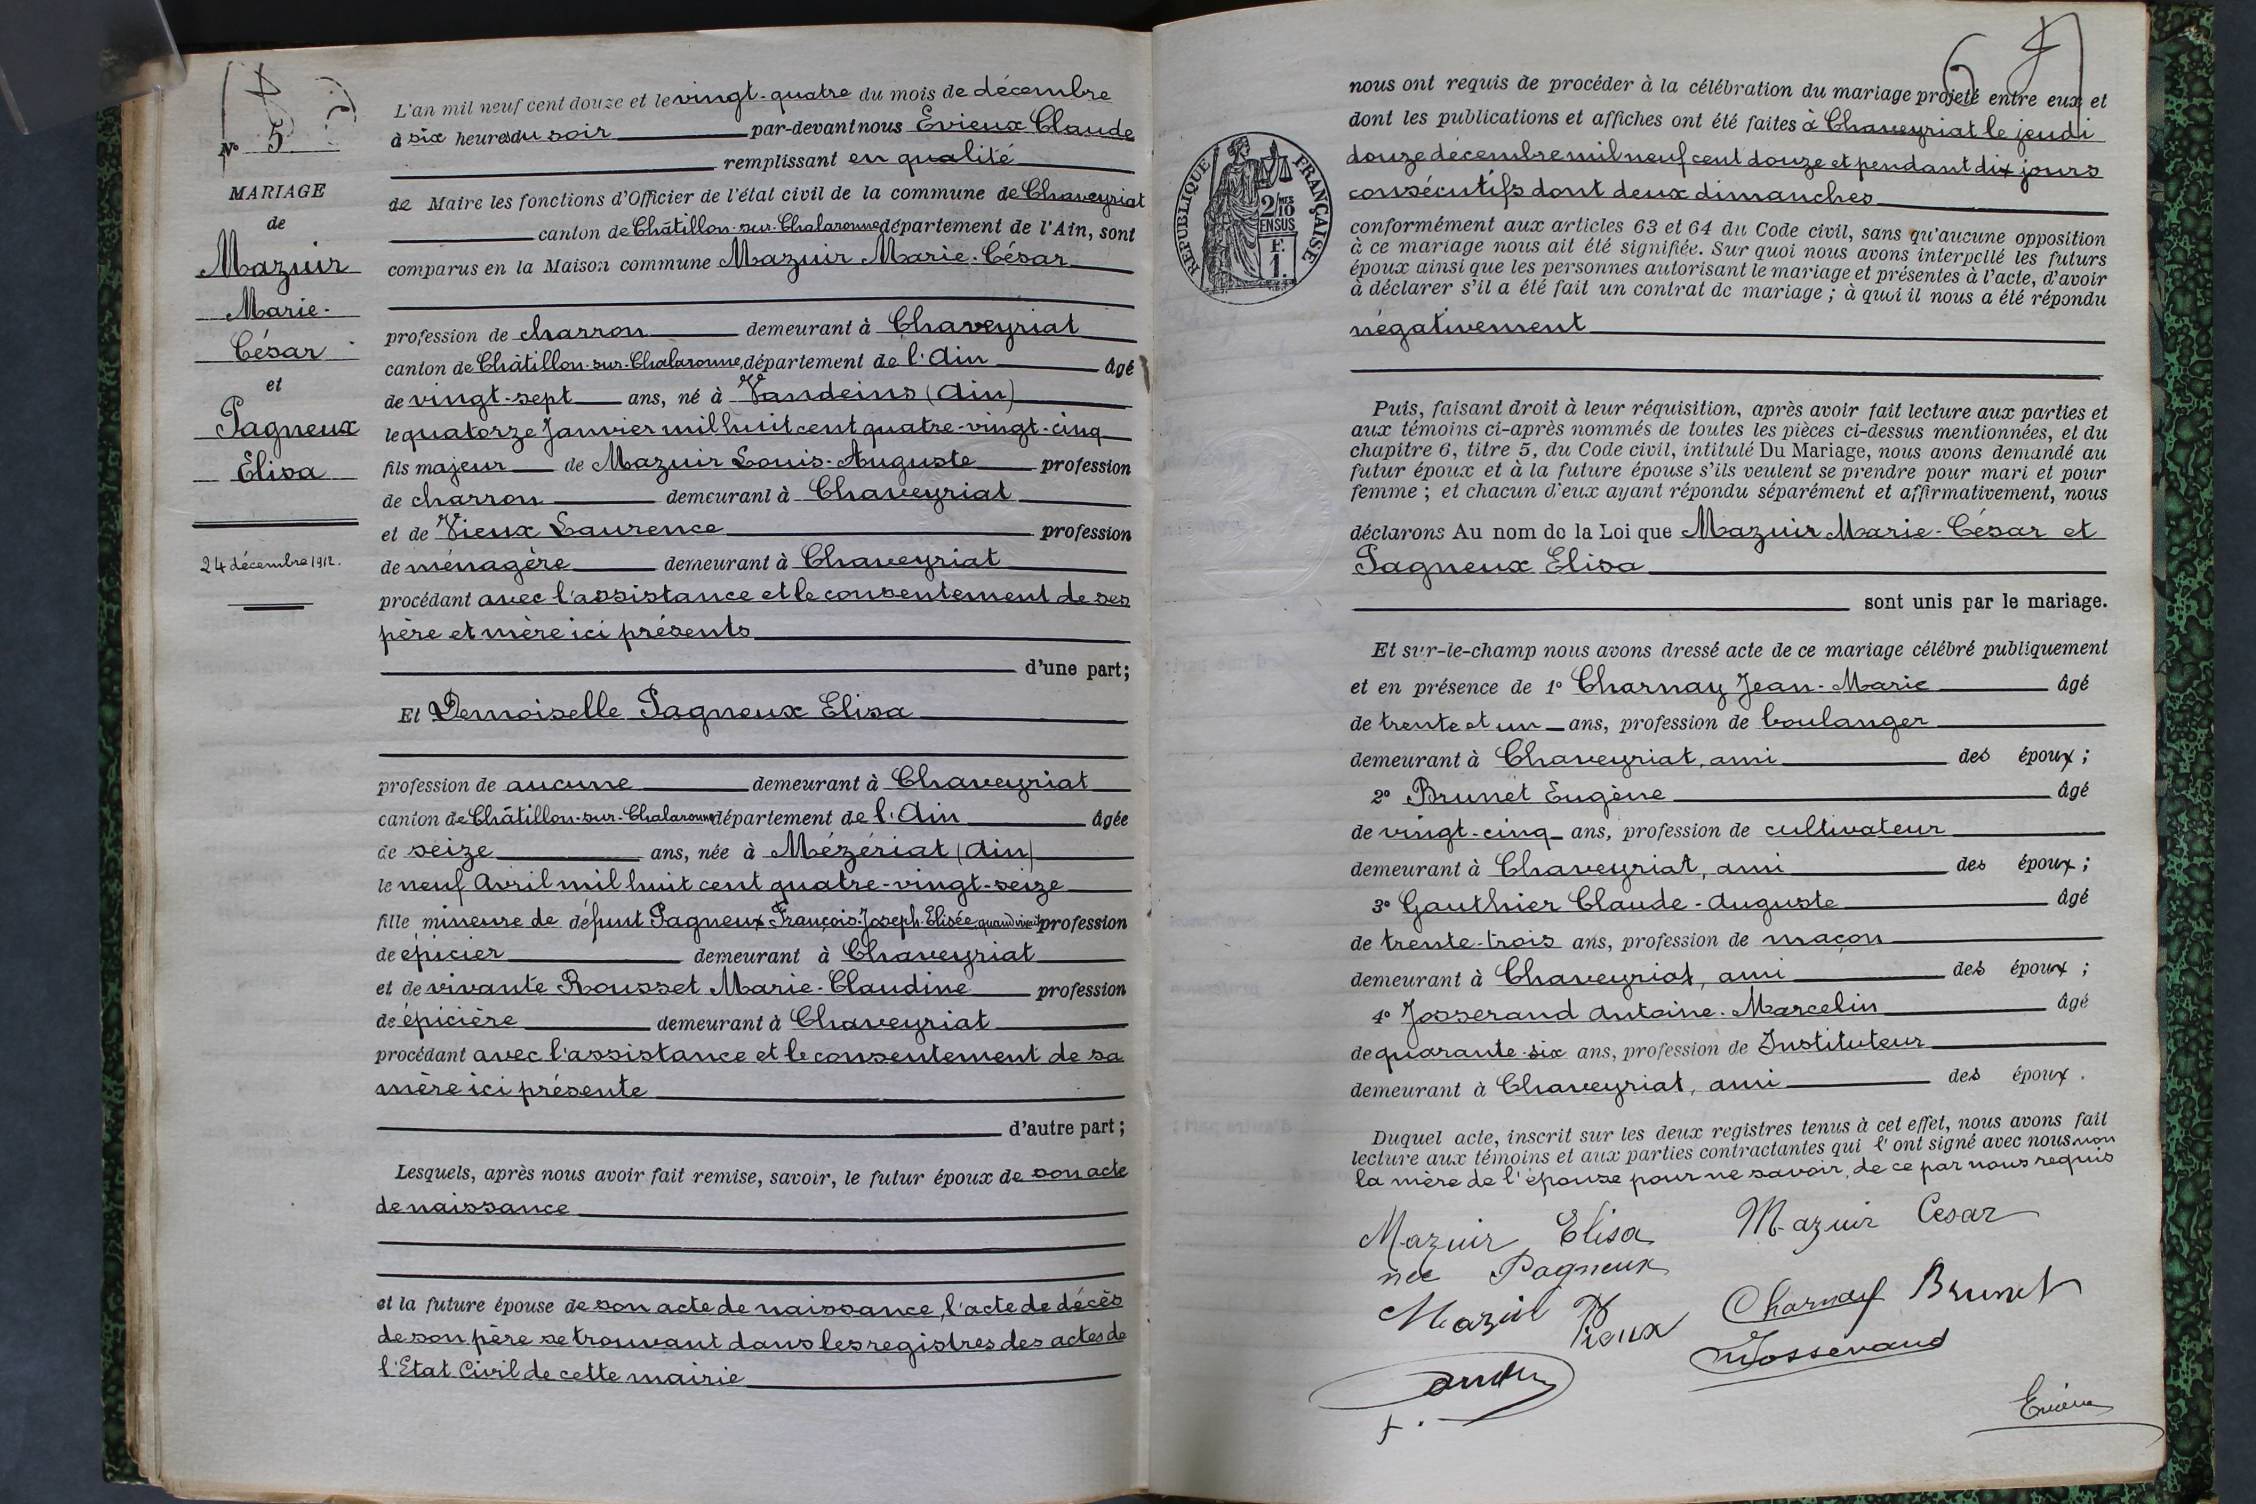 N° 5
MARIAGE
de
Mazuir
Marie-
César
et
Pagneux
Elisa
24 décembre 1912.
L'an mil neuf cent douze et le vingt-quatre du mois de décembre
à six heures du soir par-devant nous Evieux Claude
remplissant en qualité
de Maire les fonctions d'Officier de l'état civil de la commune de Chaveyriat
canton de Châtillon-sur-Chalaronne département de l'Ain, sont
comparus en la Maison commune Mazuir Marie-César
profession de charron demeurant à Chaveyriat
canton de Châtillon-sur-Chalaronne, département de l'Ain âgé
de vingt-sept ans, né à Vandeins (Ain)
le quatorze Janvier mil huit cent quatre-vingt-cinq
fils majeur de Mazuir Louis-Auguste profession
de charron demeurant à Chaveyriat
et de Vieux Laurence profession
de ménagère demeurant à Chaveyriat
procédant avec l'assistance et le consentement de ses
père et mère ici présents
d'une part;
Et Demoiselle Pagneux Elisa
profession de aucune demeurant à Chaveyriat
canton de Châtillon-sur-Chalaronne département de l'Ain âgée
de seize ans, née à Mézériat (Ain)
le neuf Avril mil huit cent quatre-vingt-seize
fille mineure de défunt Pagneux François-Joseph-Elisée, quand vivait profession
de épicier demeurant à Chaveyriat
et de vivante Rousset Marie-Claudine profession
de épicière demeurant à Chaveyriat
procédant avec l'assistance et le consentement de sa
mère ici présente
d'autre part;
Lesquels, après nous avoir fait remise, savoir, le futur époux de son acte
de naissance
et la future épouse de son acte de naissance, l'acte de décès
de son père se trouvant dans les registres des actes de
l'Etat Civil de cette mairie
nous ont requis de procéder à la célébration du mariage projeté entre eux et
dont les publications et affiches ont été faites à Chaveyriat le jeudi
douze décembre mil neuf cent douze et pendant dix jours
consécutifs dont deux dimanches
RÉPUBLIQUE FRANÇAISE
2/10 MES
EN SUS
F.
1.
conformément aux articles 63 et 64 du Code civil, sans qu'aucune opposition
à ce mariage nous ait été signifiée. Sur quoi nous avons interpellé les futurs
époux ainsi que les personnes autorisant le mariage et présentes à l'acte, d'avoir
à déclarer s'il a été fait un contrat de mariage; à quoi il nous a été répondu
négativement
Puis, faisant droit à leur réquisition, après avoir fait lecture aux parties et
aux témoins ci-après nommés de toutes les pièces ci-dessus mentionnées, et du
chapitre 6, titre 5, du Code civil, intitulé Du Mariage, nous avons demandé au
futur époux et à la future épouse s'ils veulent se prendre pour mari et pour
femme; et chacun d'eux ayant répondu séparément et affirmativement, nous
déclarons Au nom de la Loi que Mazuir Marie-César et
Pagneux Elisa
sont unis par le mariage.
Et sur-le-champ nous avons dressé acte de ce mariage célébré publiquement
et en présence de 1° Charnay Jean-Marie âgé
de trente et un ans, profession de boulanger
demeurant à Chaveyriat, ami des époux;
2° Brunet Eugène âgé
de vingt-cinq ans, profession de cultivateur
demeurant à Chaveyriat, ami des époux;
3° Gauthier Claude-Auguste âgé
de trente-trois ans, profession de maçon
demeurant à Chaveyriat, ami des époux;
4° Josserand Antoine-Marcelin âgé
de quarante-six ans, profession de Instituteur
demeurant à Chaveyriat, ami des époux.
Duquel acte, inscrit sur les deux registres tenus à cet effet, nous avons fait
lecture aux témoins et aux parties contractantes qui l'ont signé avec nous non
la mère de l'épouse pour ne savoir, de ce par nous requis
Mazuir Elisa Mazuir Cesar
née Pagneux
Charnay Brunet
Josserand
Evieux